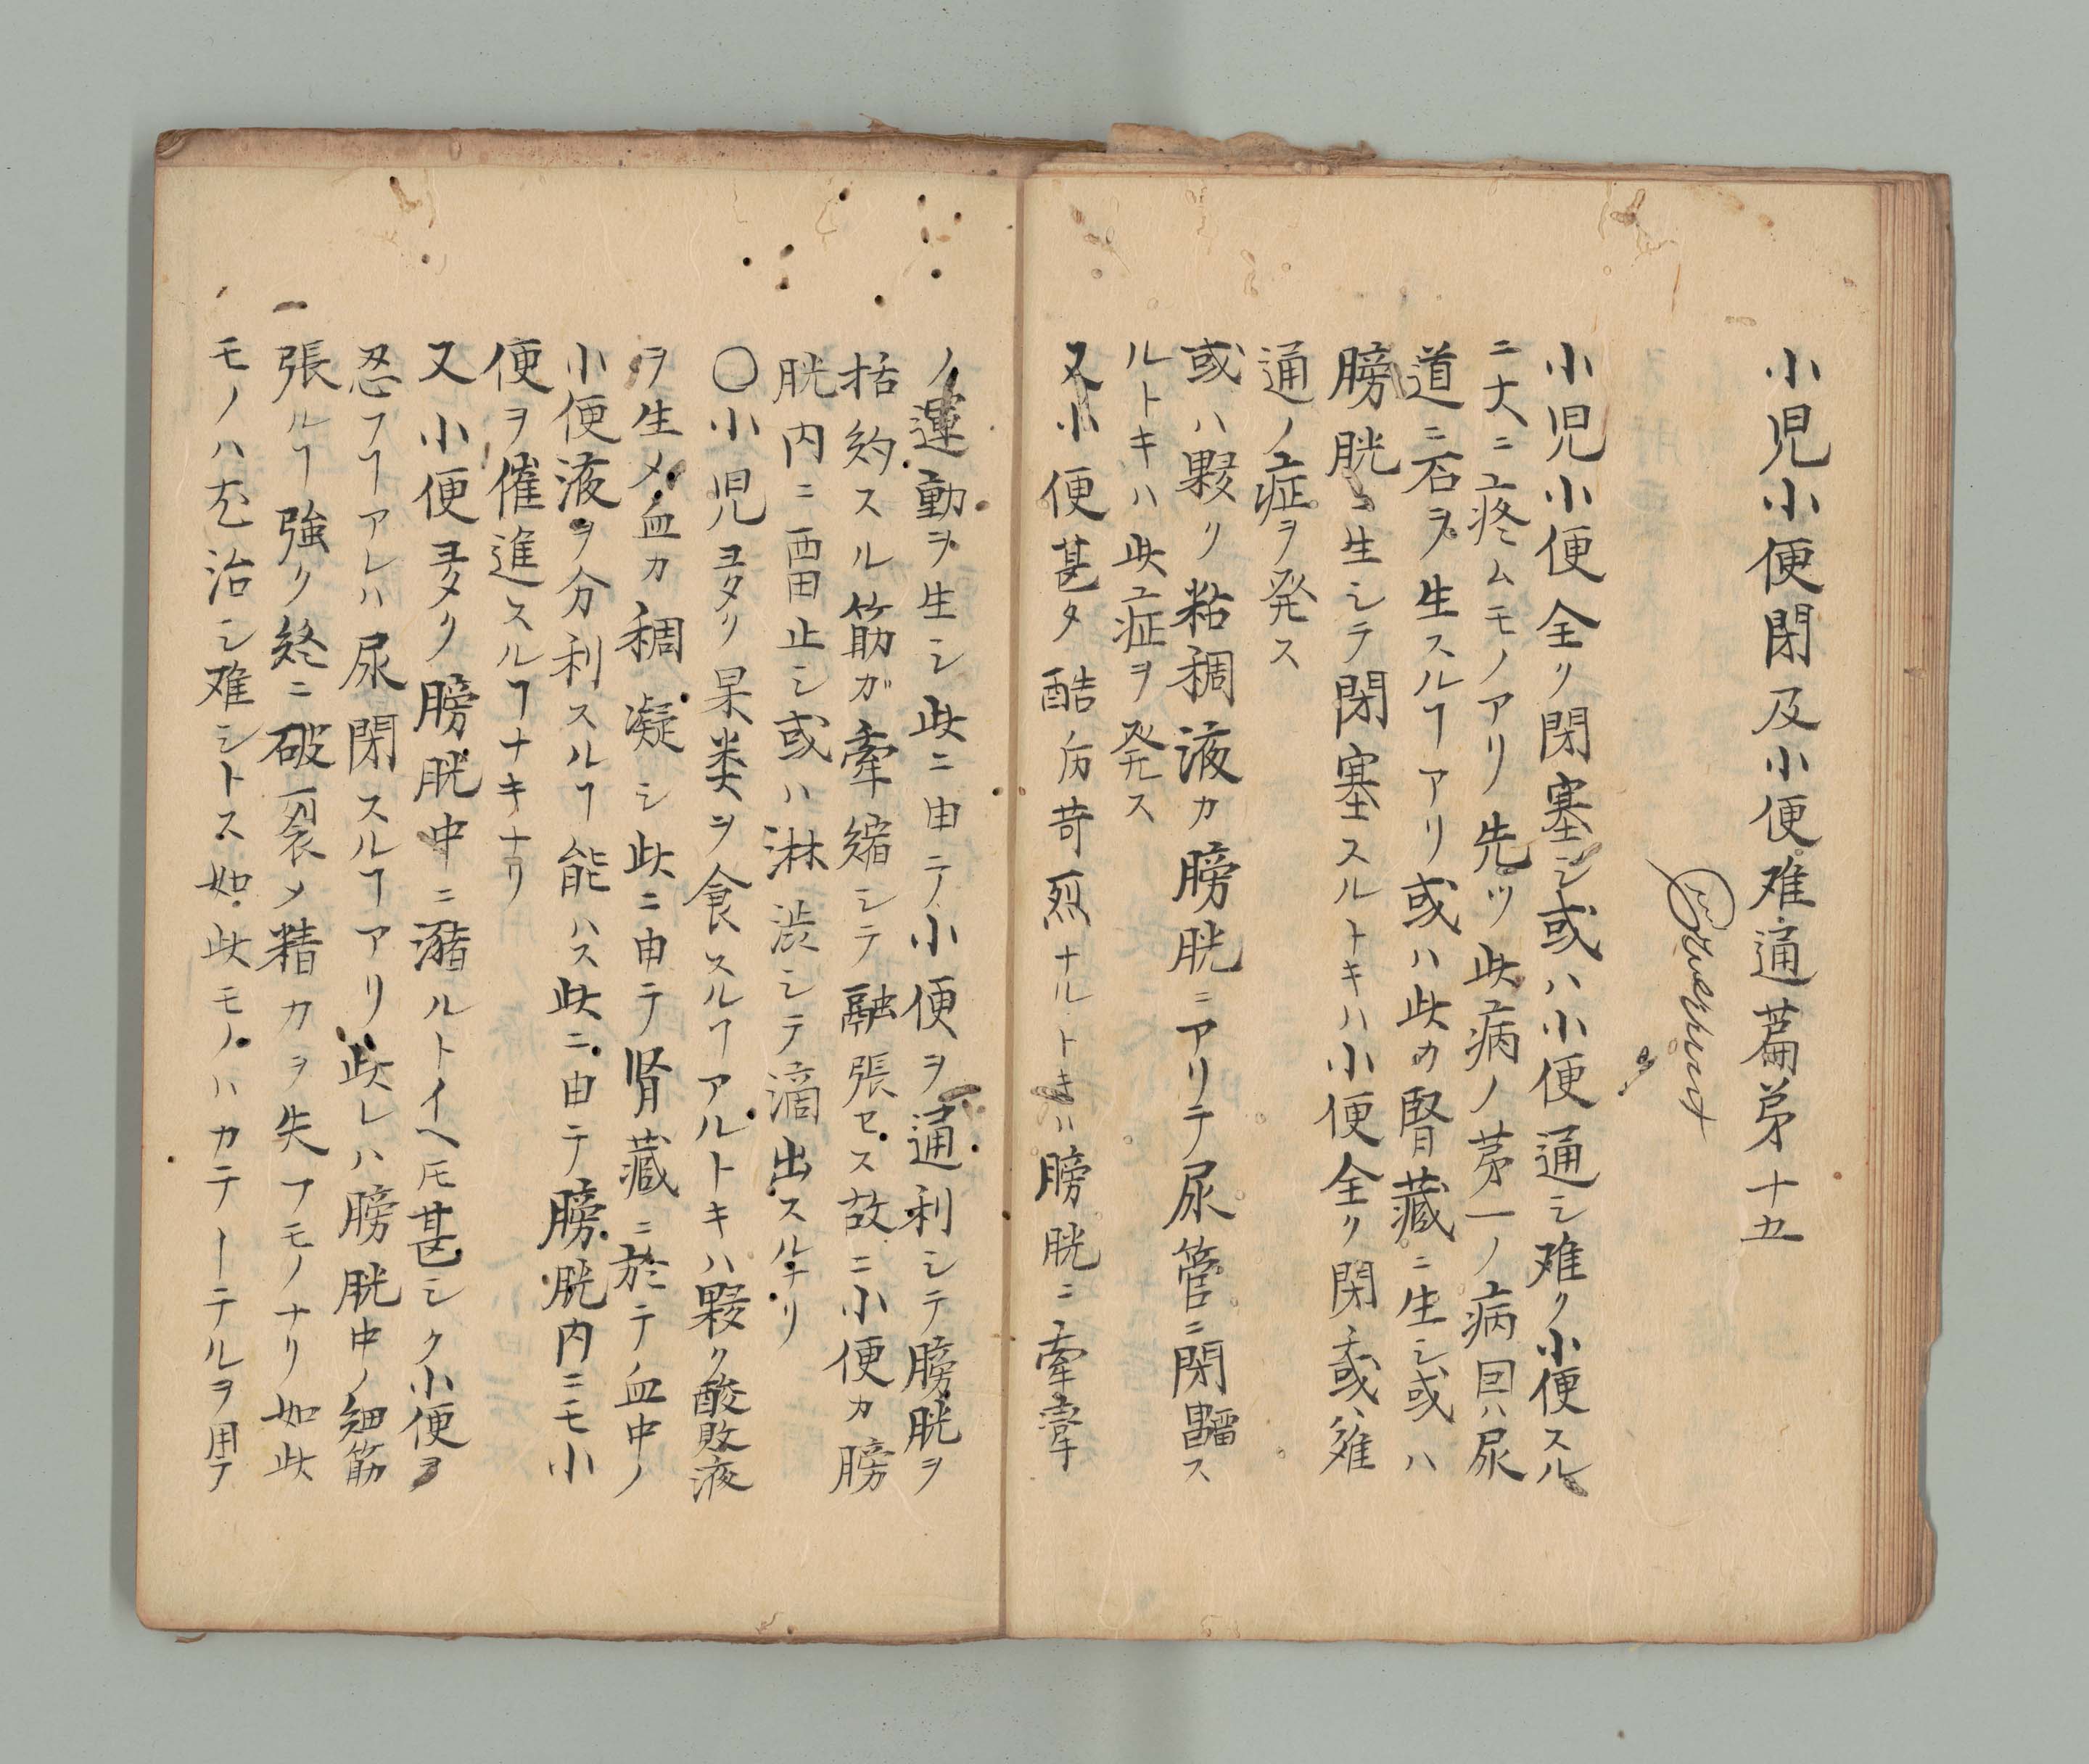 小児小便閉及小便难通篇第十五
小児小便全ク閉塞シ或ハ小便通シ难ク小便スル
ニ大ニ疼ムモノアリ先ツ此病ノ茅一ノ病因ハ尿
道ニ石ヲ生スルヿアリ或ハ此カ腎蔵ニ生シ或ハ
膀胱ニ生シテ閉塞スルトキハ小便全ク閉或ハ难
通ノ症ヲ発ス
或ハ夥ク粘稠液カ膀胱ニアリテ尿管ニ閉畱ス
ルトキハ此症ヲ発ス
又小便甚タ酷厉苛烈ナルトキハ膀胱ニ牽韋
ノ運動ヲ生シ此ニ由テ小便ヲ通利シテ膀胱ヲ
括約スル筋ガ牽縮シテ融張セス故ニ小便カ膀
胱内ニ畱止シ或ハ淋渋シテ滴出スルナリ
〇小児ヨタリ果类ヲ食スルヿアルトキハ夥ク酸敗液
ヲ生メ血カ稠凝シ此ニ由テ肾蔵ニ於テ血中ノ
小便液ヲ分利スルヿ能ハス此ニ由テ膀胱内ニモ小
便ヲ催進スルヿナキナリ
又小便ヨタク膀胱中ニ瀦ルトイヘ𪜈甚シク小便ヲ
忍フヿアレハ尿閉スルヿアリ此レハ膀胱中ノ細筋
張ルヿ強ク終ニ破裂メ精力ヲ失フモノナリ如此
モノハ尤治シ难シトス如此モノハカテーテルヲ用テ